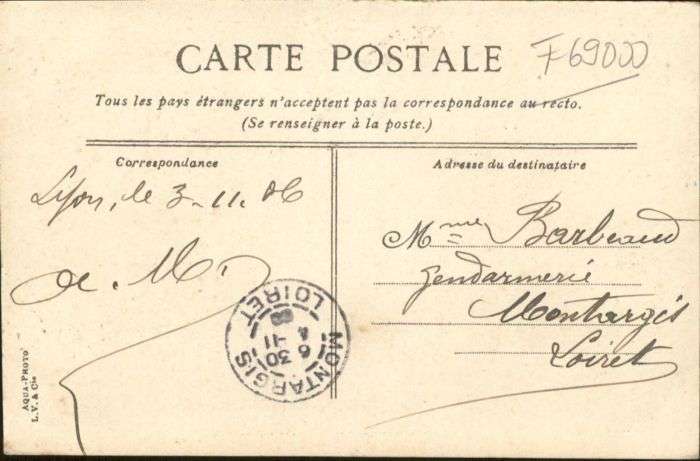 CARTE POSTALE
F69000
Tous les pays étrangers n'acceptent pas la correspondance au recto.
(Se renseigner à la poste.)
Correspondance
Lyon, le 3-11.06
Adresse du destinataire
Mme Barbeaud
Gendarmerie
Montargis
Loiret
MONTARGIS
LOIRET
AQUA-PHOTO
L.V. & Cie